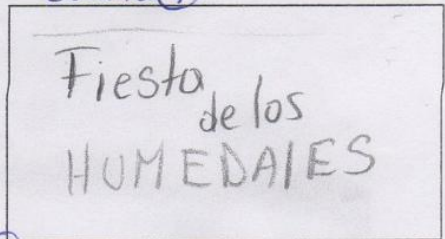 Fiesta
de los
HUMEDAlES